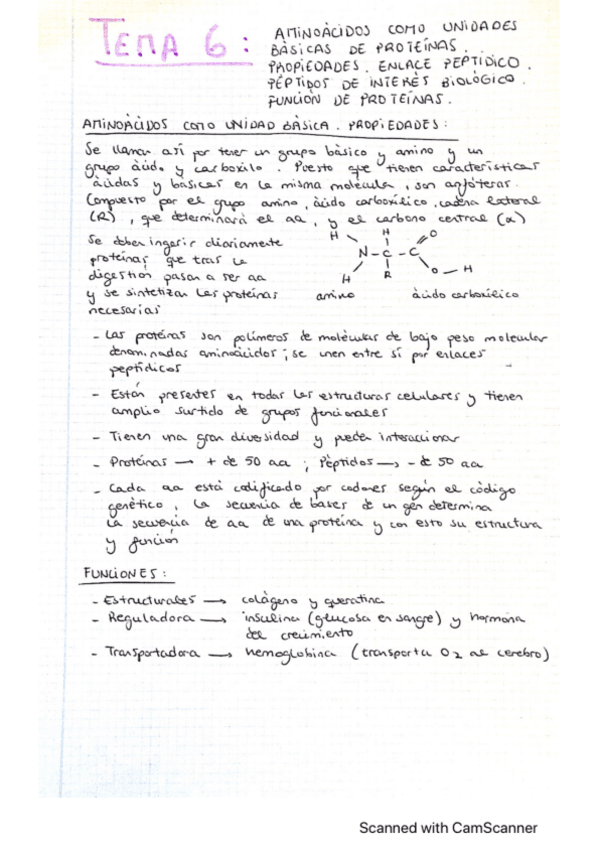 TEMA 6:
AMINOÀCIDOS COMO UNIDADES
BÀSICAS DE PROTEÍNAS.
PROPIEDADES. ENLACE PEPTÍDICO.
PÉPTIDOS DE INTERÉS BIOLÓGICO.
FUNCIÓN DE PROTEÍNAS.
AMINOÀCIDOS COMO UNIDAD BÀSICA. PROPIEDADES:
Se llaman así por tener un grupo bàsico y amino y un
grupo àcido y carboxilo. Puesto que tienen caracterìsticas
àcidas y basicas en la misma molécula, son anfóteras.
Compuesto por el grupo amino, àcido carboxílico, cadena lateral
(R), que determinarà el aa, y el carbono central (α)
Se deben ingerir diariamente
proteínas que tras la
digestión pasan a ser aa
y se sintetizan las proteínas
necesarias
H H O
N - C - C
H R O - H
amino àcido carboxílico
- Las proteínas son polímeros de molèculas de bajo peso molecular
denominadas aminoàcidos; se unen entre sí por enlaces
peptídicos
- Estàn presentes en todas las estructuras celulares y tienen
amplio surtido de grupos funcionales
- Tienen una gran diversidad y pueden interaccionar
- Proteínas → + de 50 aa ; Pèptidos → - de 50 aa
- Cada aa està codificado por codones según el còdigo
genètico, la secuencia de bases de un gen determina
la secuencia de aa de una proteína y con esto su estructura
y función
FUNCIONES:
- Estructurales → colàgeno y queratina
- Reguladora → insulina (glucosa en sangre) y hormona
del crecimiento
- Transportadora → hemoglobina (transporta O2 al cerebro)
Scanned with CamScanner